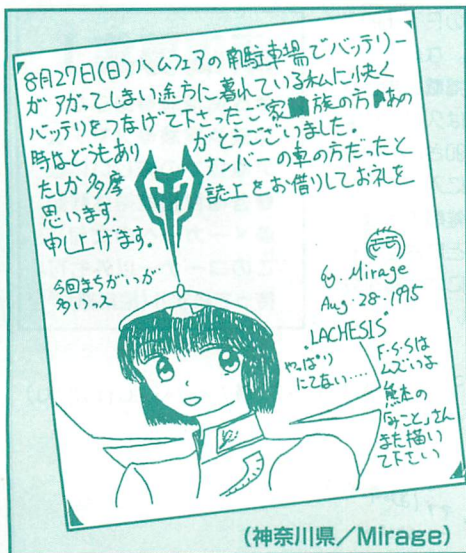 8月27日(日)ハムフェアの南駐車場でバッテリー
がアがってしまい途方に暮れている私に快く
バッテリをつなげて下さったご家族の方あの
時はどうもありがとうございました。
たしか多摩ナンバーの車の方だったと
思います。誌上をお借りしてお礼を
申し上げます。
今回まちがいが
多いっス
by. Mirage
Aug. 28. 1995
"LACHESIS"
やっぱり
にてない....
F・S・Sは
ムズいよ
熊本の
「みこと」さん
また描い
て下さい
(神奈川県/Mirage)